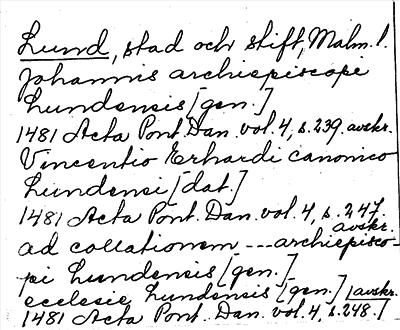 Lund, stad och stift, Malm. l.
Johannis archiepiscopi
Lundensis [gen.]
1481 Acta Pont. Dan. vol. 4, s. 239. avskr.
Vincentio Erhardi canonico
Lundensi [dat.]
1481 Acta Pont. Dan. vol. 4, s. 247.
avskr.
ad collationem --- archiepisco-
pi Lundensis [gen.]
ecclesie Lundensis [gen.] | avskr.
1481 Acta Pont. Dan. vol. 4, s. 248. |